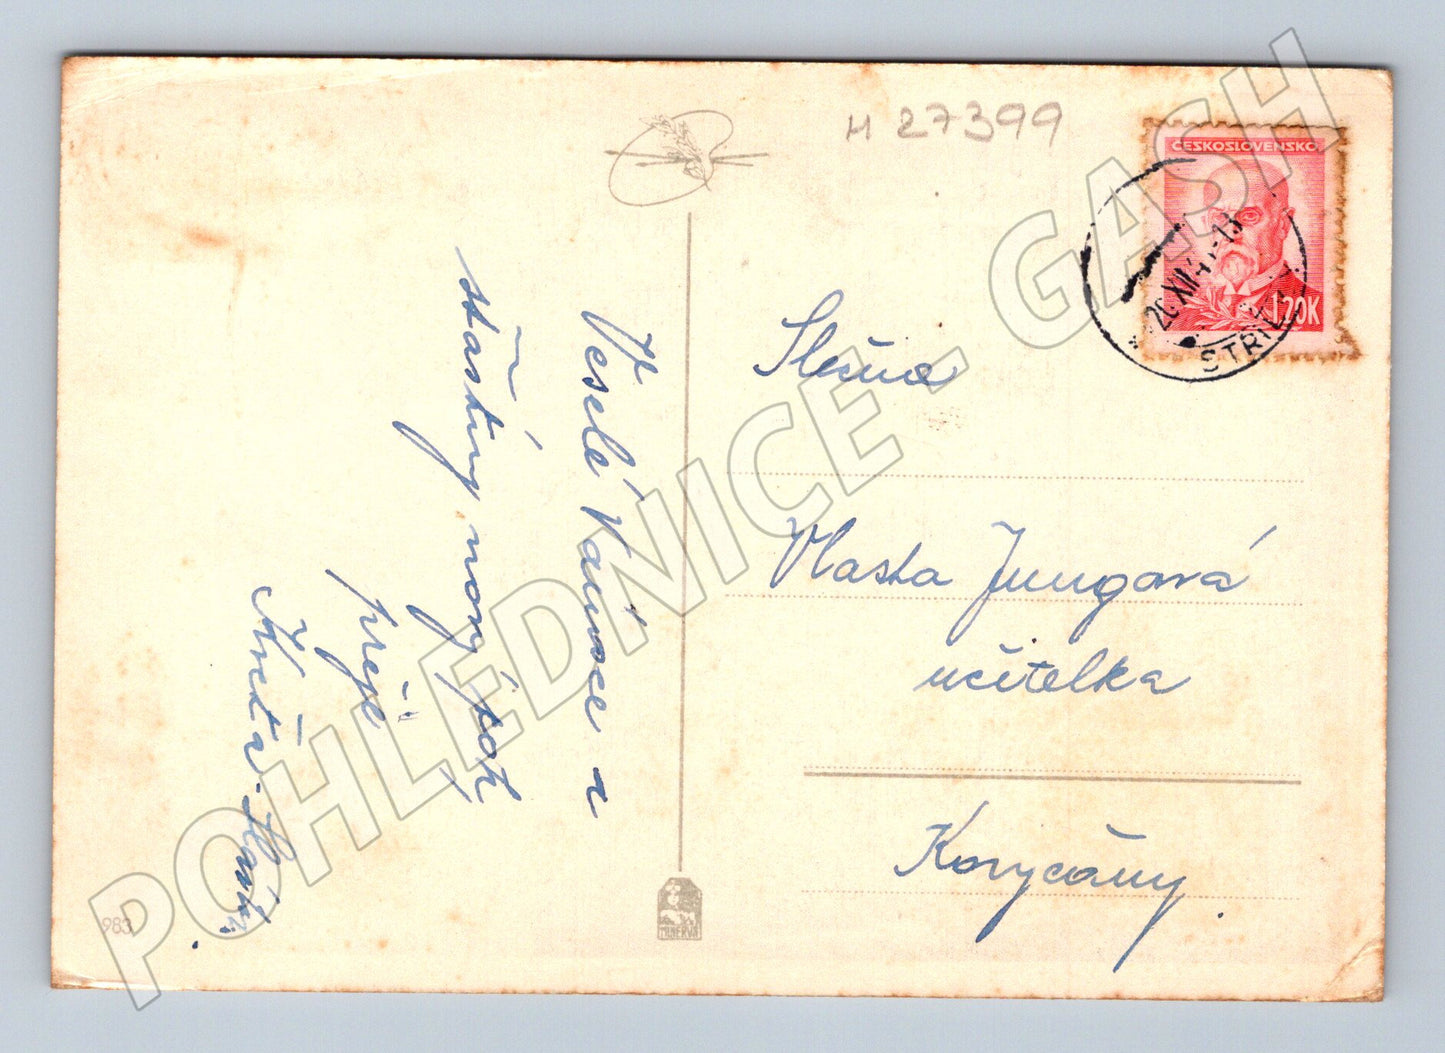 H 27399
ČESKOSLOVENSKO
1.20K
20.XII.
STŘÍL
Veselé Vánoce a
šťastný nový rok
přeje
Květa
Slečna
Vlasta Jungová
učitelka
Koryčany.
983
MINERVA
POHLEDNICE - GASH